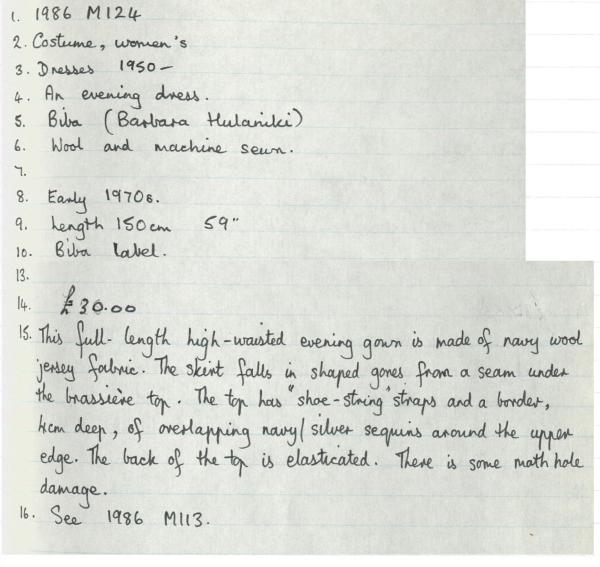 1. 1986 M124
2. Costume, women's
3. Dresses 1950-
4. An evening dress.
5. Biba (Barbara Hulaniki)
6. Wool and machine sewn.
7.
8. Early 1970s.
9. Length 150cm 59"
10. Biba label.
13.
14. £30.00
15. This full-length high-waisted evening gown is made of navy wool
jersey fabric. The skirt falls in shaped gores from a seam under
the brassière top. The top has "shoe-string" straps and a border,
4cm deep, of overlapping navy/silver sequins around the upper
edge. The back of the top is elasticated. There is some moth hole
damage.
16. See 1986 M113.